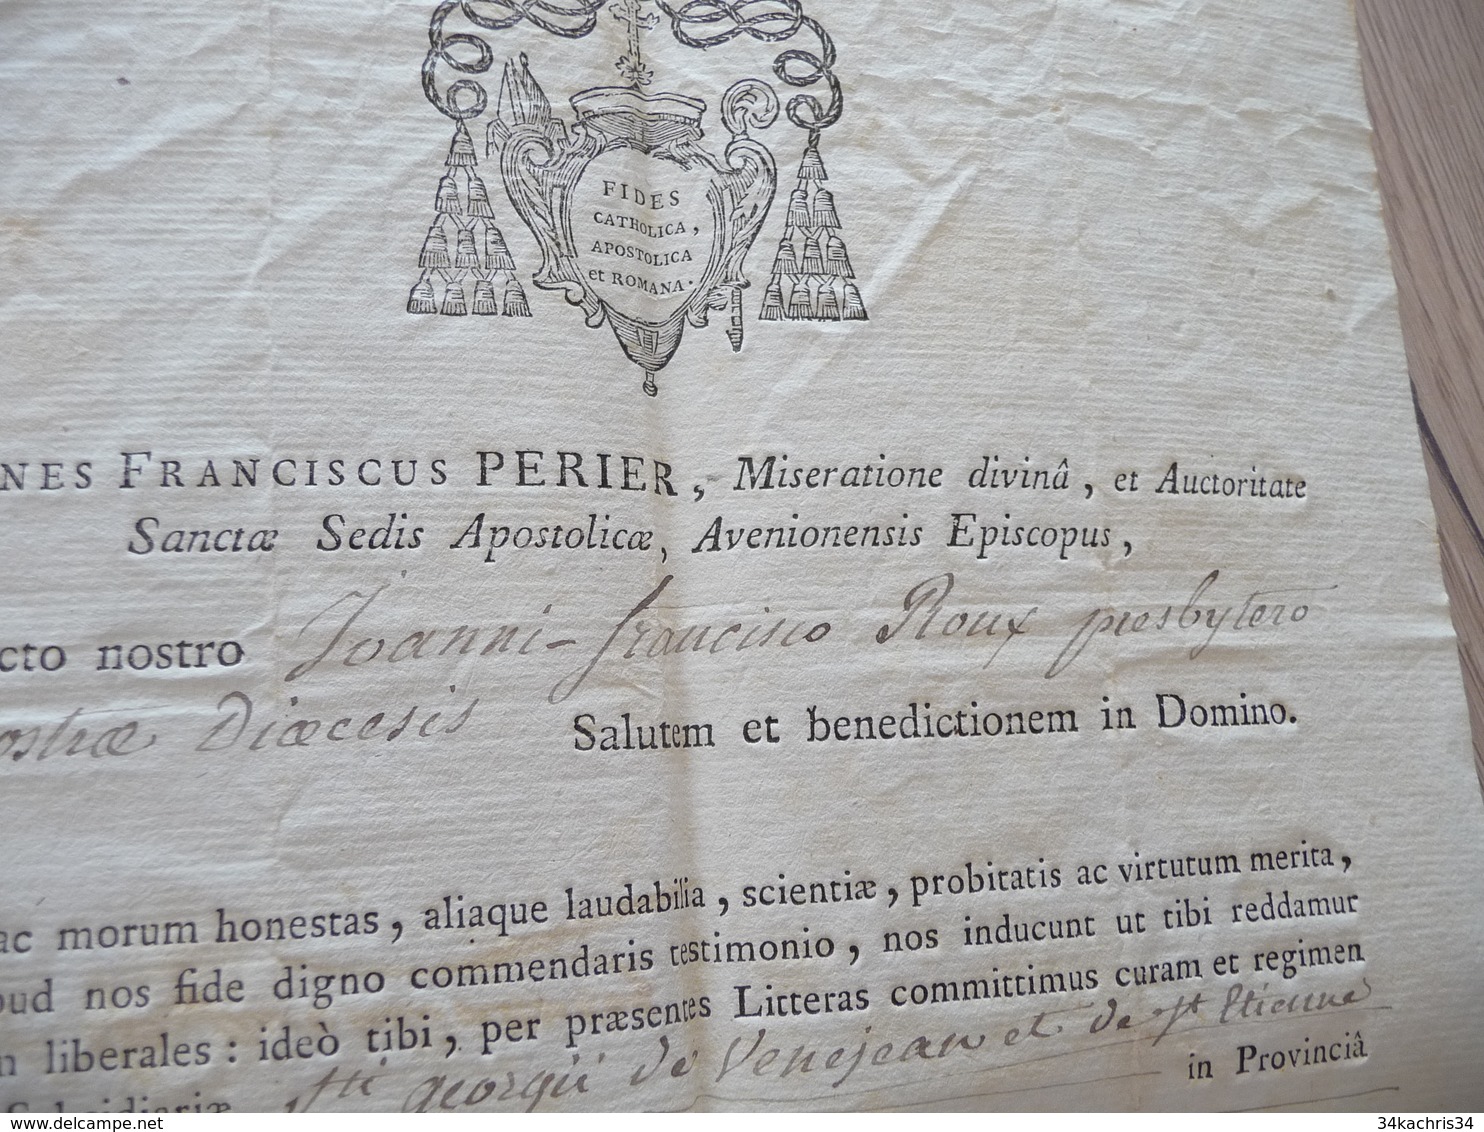 FIDES
CATHOLICA,
APOSTOLICA
et ROMANA.
NES FRANCISCUS PERIER, Miseratione divinâ, et Auctoritate
Sanctæ Sedis Apostolicæ, Avenionensis Episcopus,
cto nostro Joanni-francisco Roux presbytero
ostræ Diœcesis Salutem et benedictionem in Domino.
ac morum honestas, aliaque laudabilia, scientiæ, probitatis ac virtutum merita,
pud nos fide digno commendaris testimonio, nos inducunt ut tibi reddamur
n liberales : ideò tibi, per præsentes Litteras committimus curam et regimen
Subsidiariæ Sti georgii de Venejean et de St Etienne
in Provinciâ
34kachris34